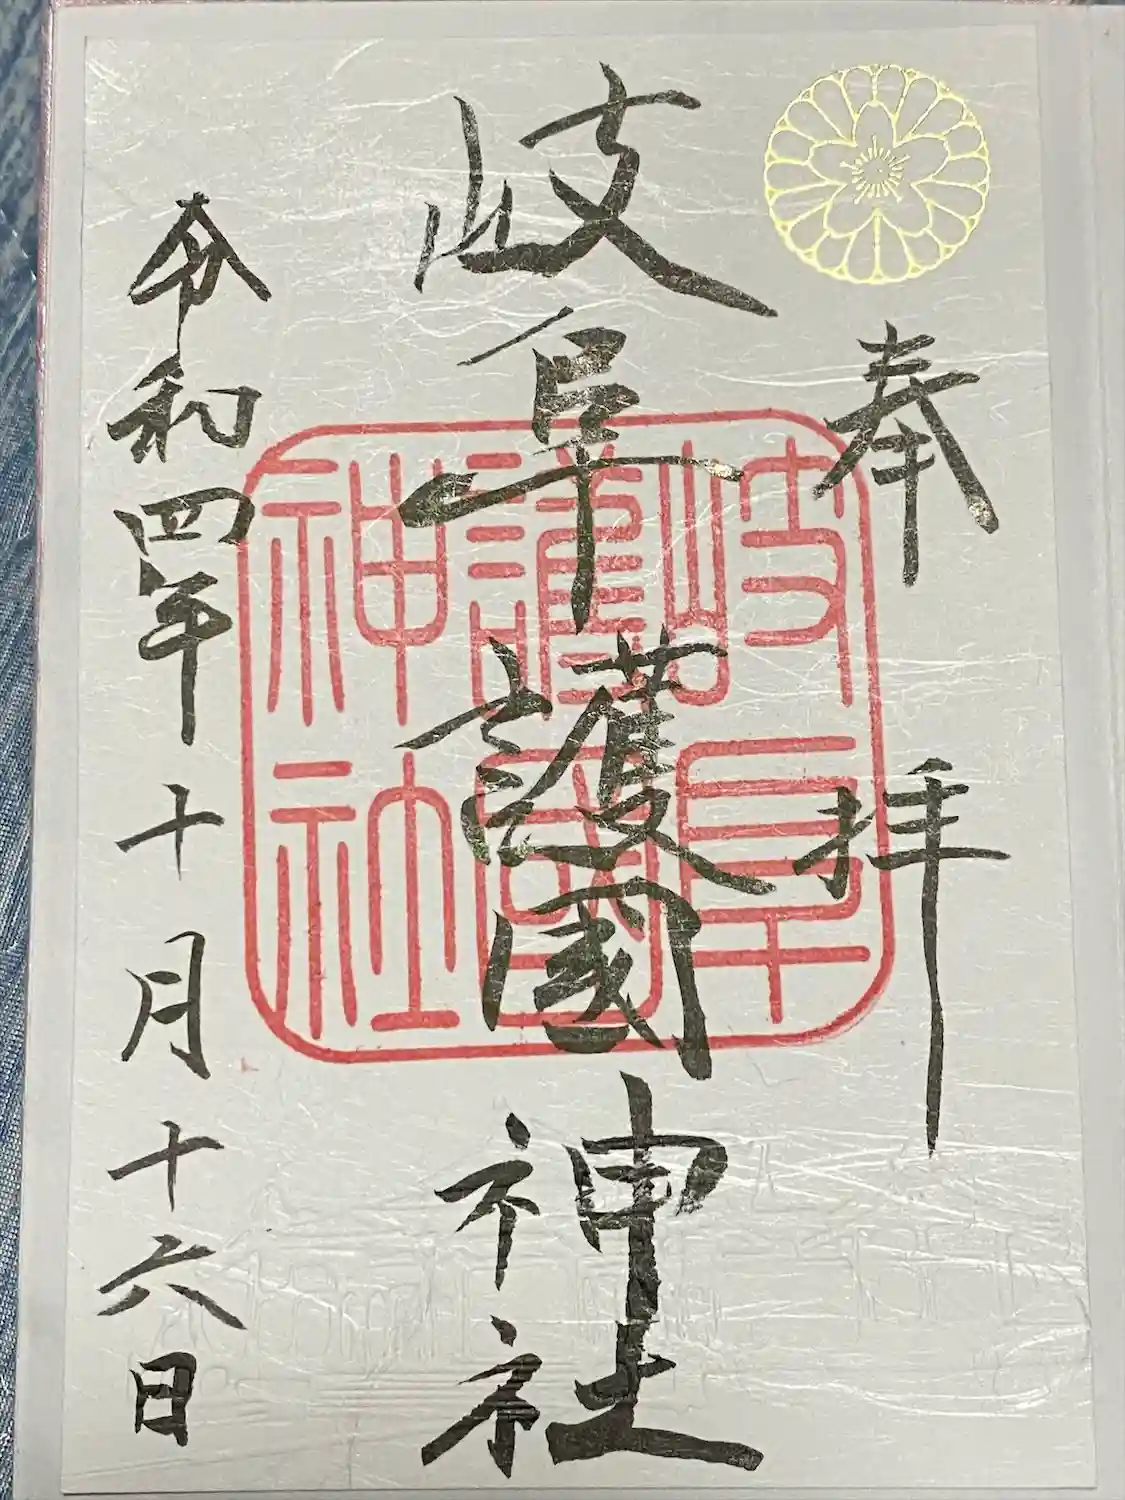 奉拝
岐阜護國神社
岐阜
護國
神社
令和四年十月十六日